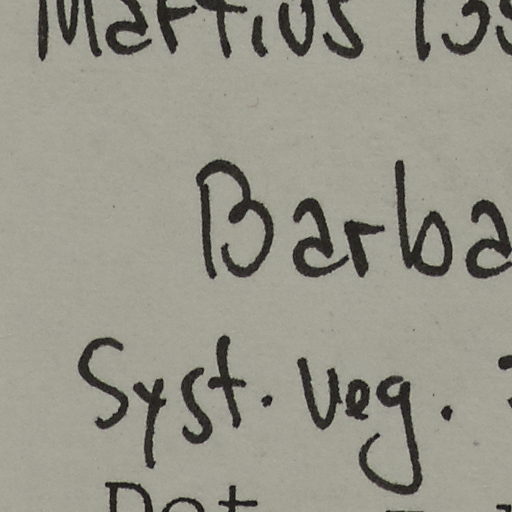 Martius 13
Barba
Syst. Veg.
Det